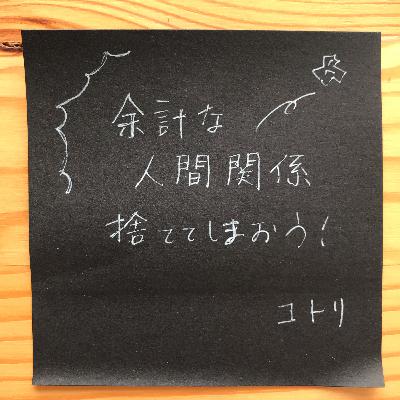 余計な
人間関係
捨ててしまおう!
コトリ